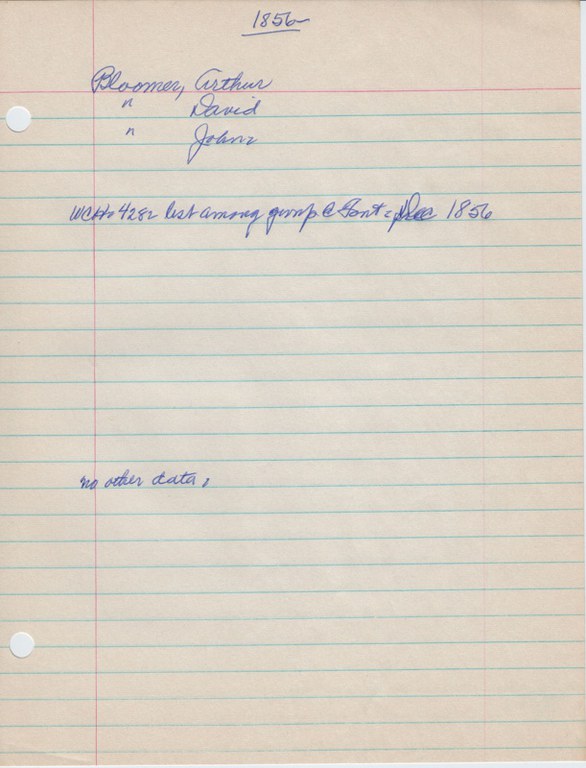 1856
Bloomer, Arthur
" David
" John
list among group @ Font = Dec 1856
no other data.